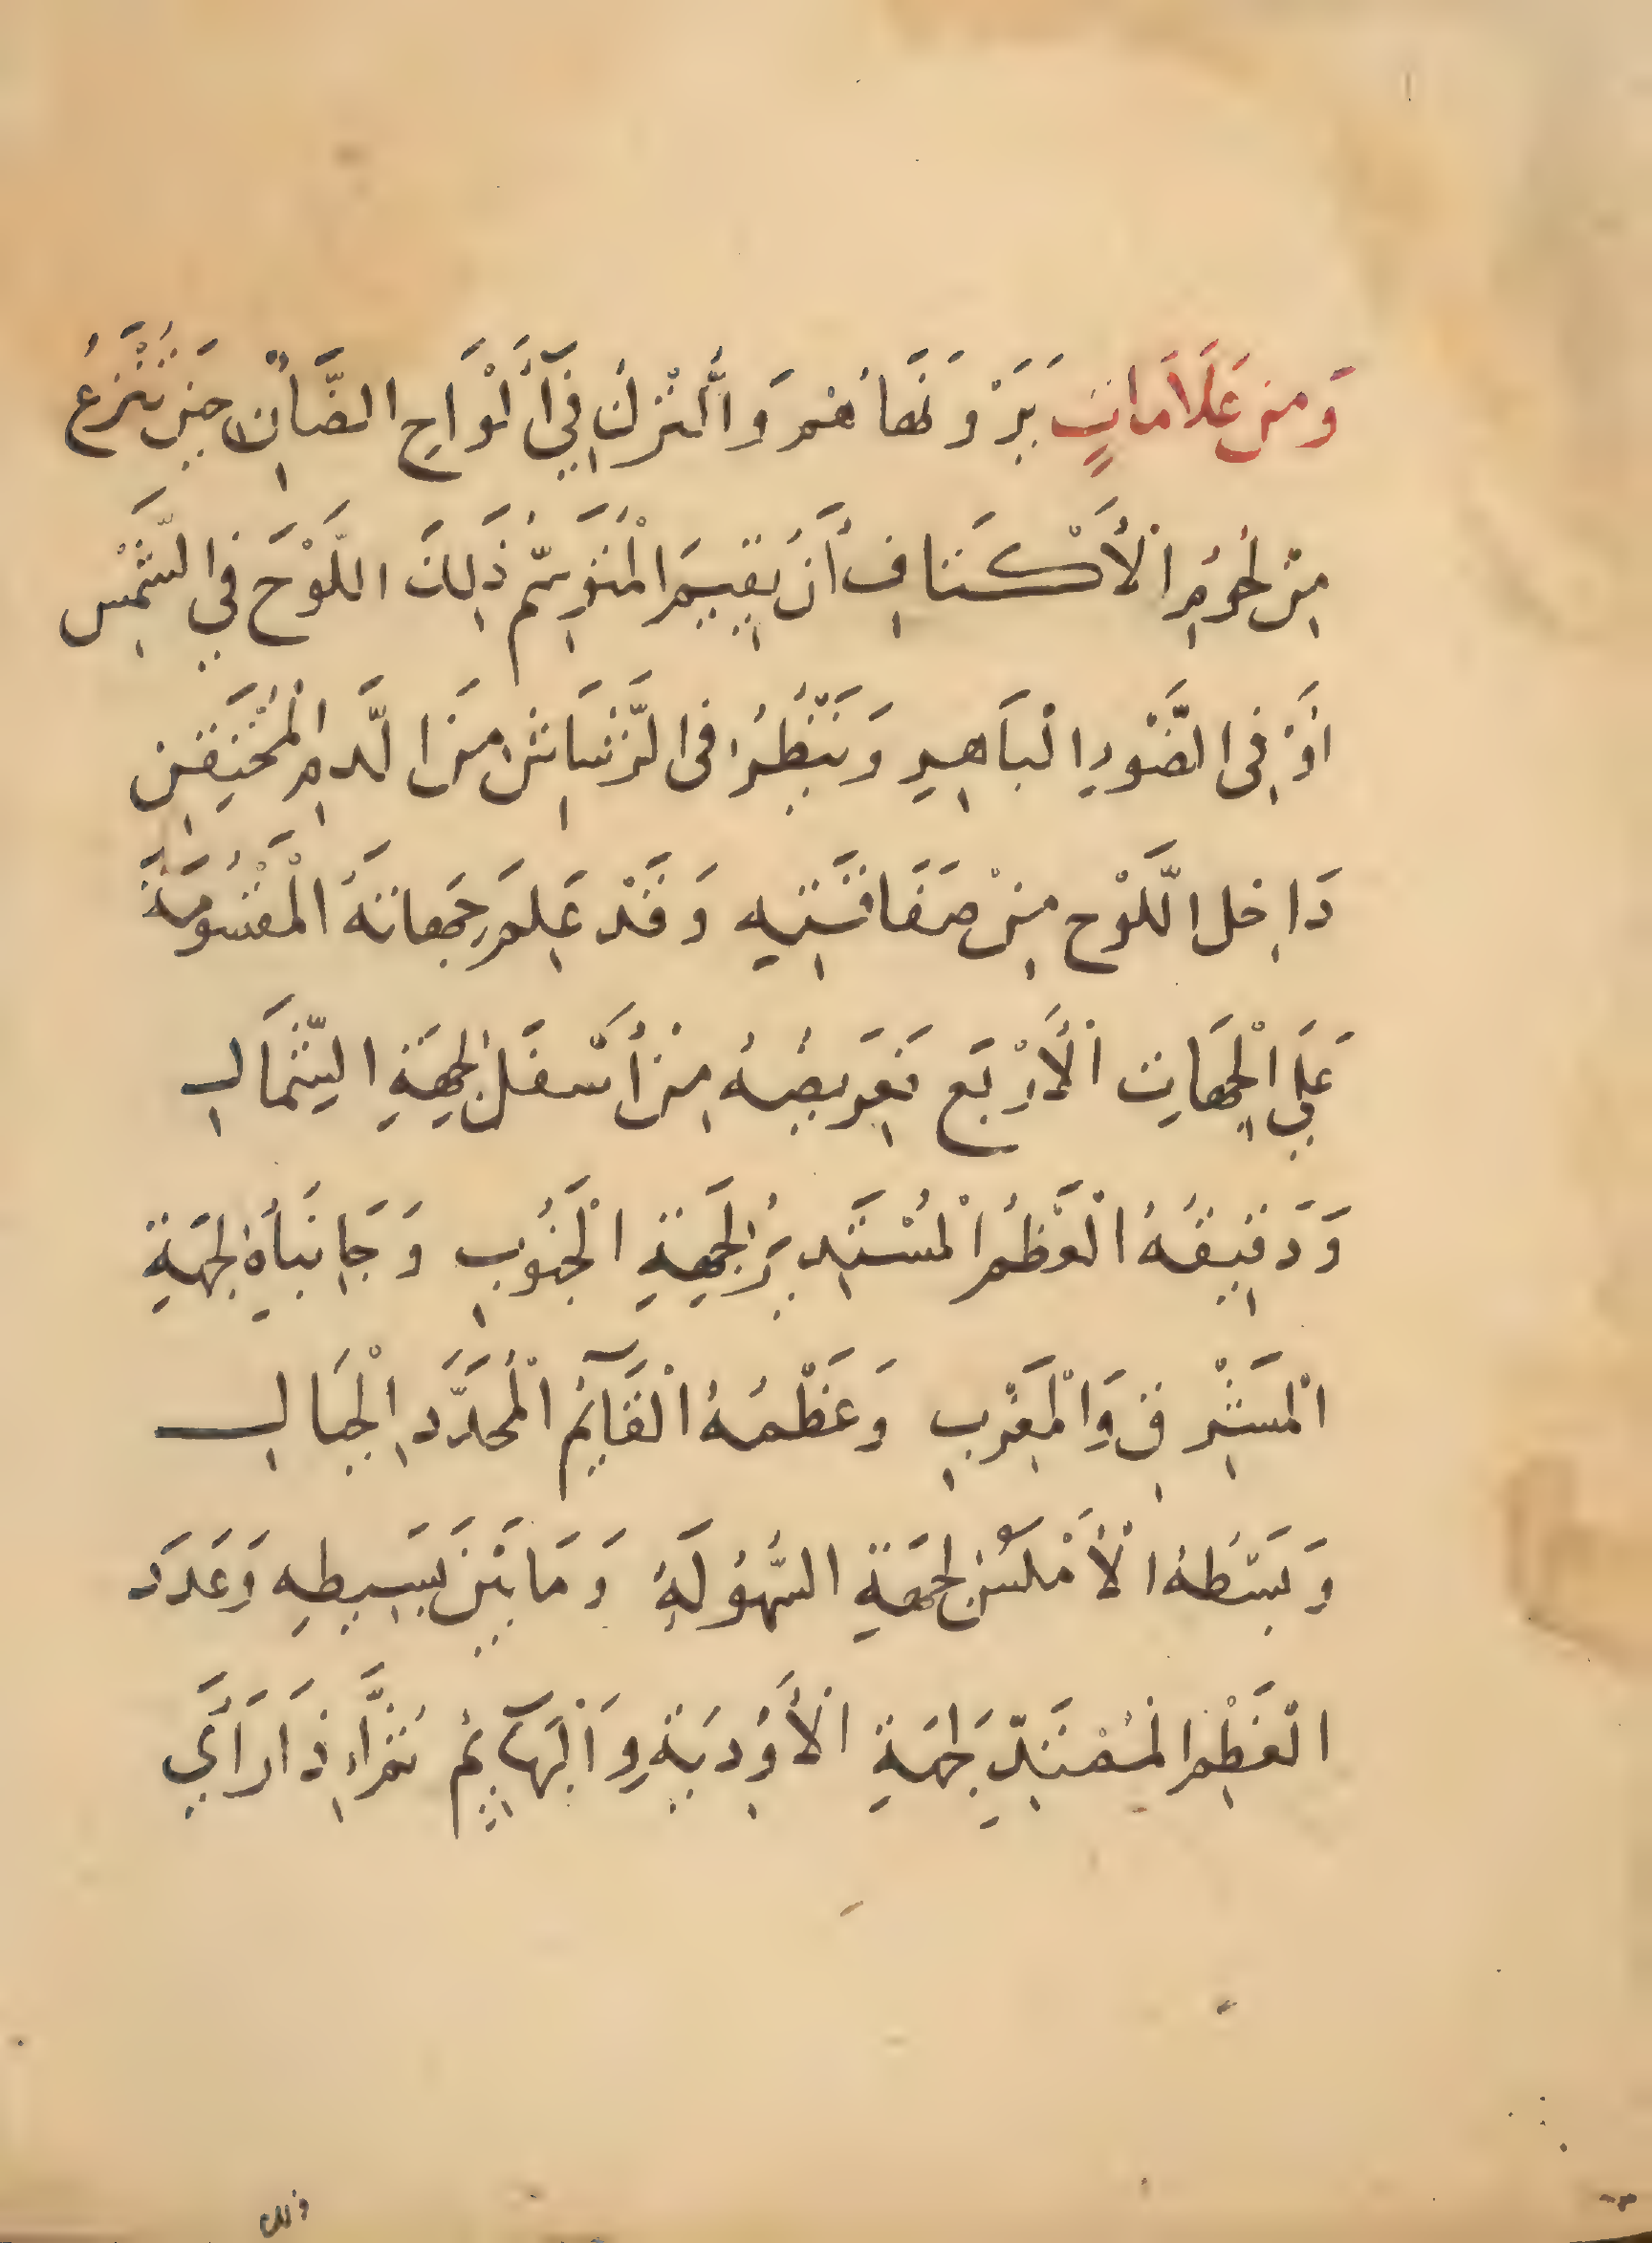 وَمِن عَلَامَاتٍ يَرَوْنَهَا هُم وَالتُّرْكُ فِي أَلْوَاحِ الضَّأنِ حِينَ تُنْزَعُ
مِنْ لُحُومِ الْأَكْتَافِ أَنْ يُقِيمَ الْمُتَوَسِّمُ ذَلِكَ اللَّوْحَ فِي الشَّمْسِ
أَوْ فِى الضَّوْءِ الْبَاهِرِ وَيَنْظُرُ فى الرَّشَاشِ مِنَ الدَّمِ الْمُحْتَقِنِ
دَاخِلَ اللَّوْحِ مِنْ صَفَاقَتَيْهِ وَقَدْ عَلِمَ جِهَاتَهُ الْمَقْسُومَةَ
عَلَى الْجِهَاتِ الْأَرْبَعِ فَعَرِيضُهُ مِنْ أَسْفَلَ لِجِهَةِ الشِّمَالِ
وَدَقِيقُهُ الْعَظْمُ الْمُسْتَدِيرُ لِجِهَةِ الْجَنُوبِ وَجَانِبَاهُ لِجِهَةِ
الْمَشْرِقِ وَالْمَغْرِبِ وَعَظْمُهُ الْقَآئِمُ الْمُحَدَّدِ الْجِبَالِ
وَبَسْطُهُ الْأَمْلَسُ لِجِهَةِ السُّهُولَةِ وَمَا بَيْنَ بَسِيطِهِ وَعَدَدَ
الْعَظْمِ الْمُمْتَدِّ جِهَةِ الْأَوْدِيَةِ وَالْبَهَآئِمُ ثُمَّ إِذَا رَأَي
ذلك